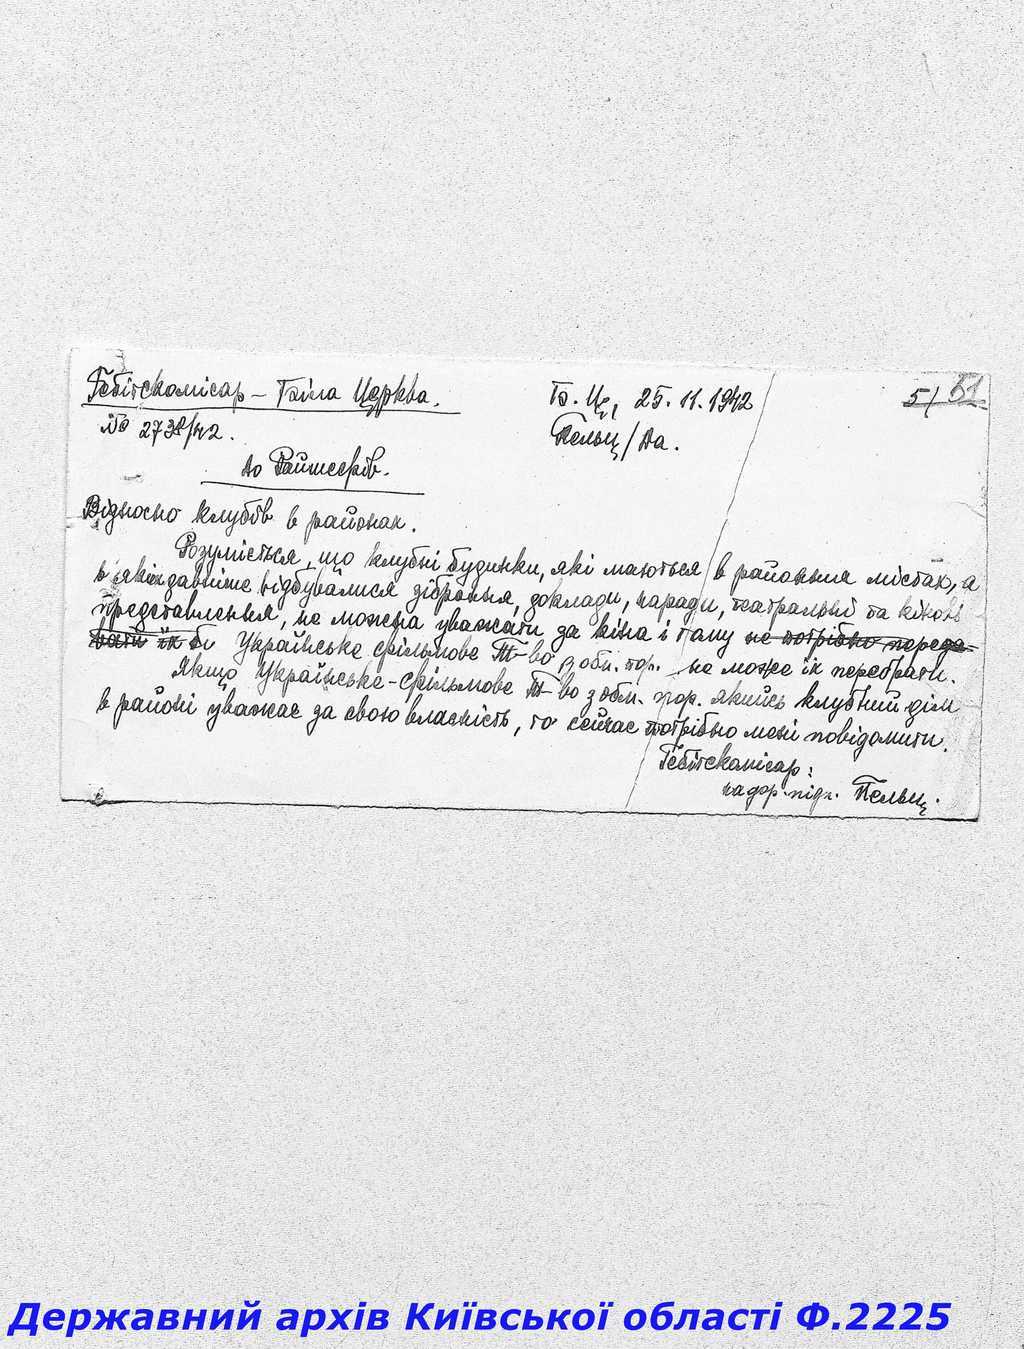 Гебітскомісар – Біла Церква. Б. Ц., 25.11.1942 51 51
№ 2738/42. Пельц/Да.
до Райшефів.
Відносно клубів в районах.
Розуміється, що клубні будинки, які маються в районних містах, а
в яких давніше відбувалися зібрання, доклади, наради, театральні та кінові
представлення, не можна уважати за кіна і тому не потрібно переда-
вати їх бі Українське фільмове Т-во з обм. пор. не може їх перебрати.
Якщо Українське-фільмове Т-во з обм. пор. якийсь клубний дім
в районі уважає за свою власність, то сейчас потрібно мені повідомити.
Гебітскомісар:
на дор. підп. Пельц.
Державний архів Київської області Ф.2225